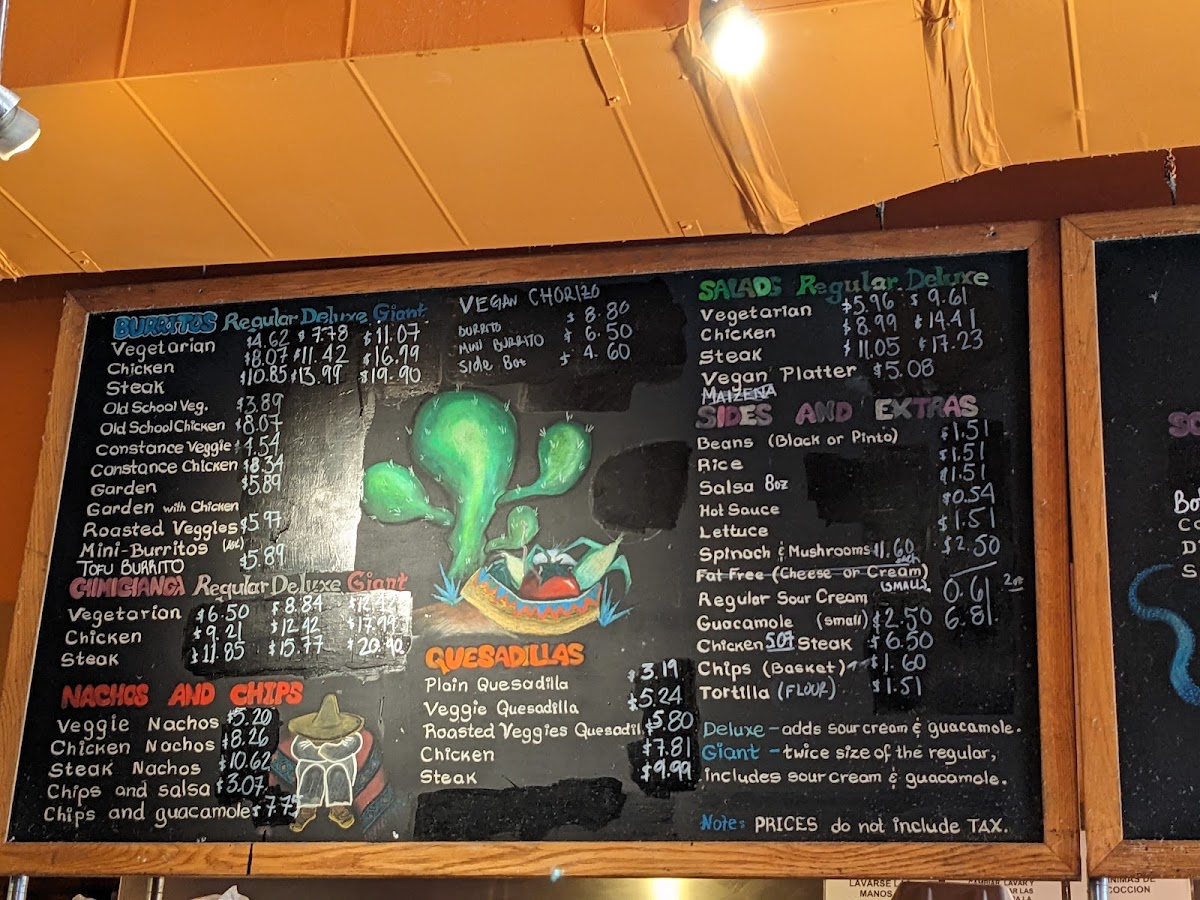 BURRITOS Regular Deluxe Giant
Vegetarian $4.62 $7.78 $11.07
Chicken $8.07 $11.42 $16.99
Steak $10.85 $13.99 $19.90
Old School Veg. $3.89
Old School Chicken $8.07
Constance Veggie $4.54
Constance Chicken $8.34
Garden $5.89
Garden with Chicken
Roasted Veggies $5.97
Mini-Burritos
TOFU BURRITO $5.89
CHIMICHANGA Regular DeLuxe Giant
Vegetarian $6.50 $8.84
Chicken $9.21 $12.42 $17.99
Steak $11.85 $15.77 $20.90
NACHOS AND CHIPS
Veggie Nachos $5.20
Chicken Nachos $8.26
Steak Nachos $10.62
Chips and salsa $3.07
Chips and guacamole $7.75
VEGAN CHORIZO
BURRITO $8.80
MINI BURRITO $6.50
Side 8oz $4.60
QUESADILLAS
Plain Quesadilla $3.19
Veggie Quesadilla $5.24
Roasted Veggies Quesadil $5.80
Chicken $7.81
Steak $9.99
SALADS Regular Deluxe
Vegetarian $5.96 $9.61
Chicken $8.99 $14.41
Steak $11.05 $17.23
Vegan Platter $5.08
MAIZENA
SIDES AND EXTRAS
Beans (Black or Pinto) $1.51
Rice $1.51
Salsa 8oz $1.51
Hot Sauce $0.54
Lettuce $1.51
Spinach & Mushrooms $1.60 each $2.50
Fat Free (Cheese or Cream)
Regular Sour Cream (SMALL) 0.61 2oz
Guacamole (small) $2.50 6.81
Chicken 5oz Steak $6.50
Chips (Basket) $1.60
Tortilla (FLOUR) $1.51
Deluxe - adds sour cream & guacamole.
Giant - twice size of the regular,
includes sour cream & guacamole.
Note: PRICES do not include TAX.
LAVARSE
MANOS
CAMBIAR, LAVAR Y
COCCION